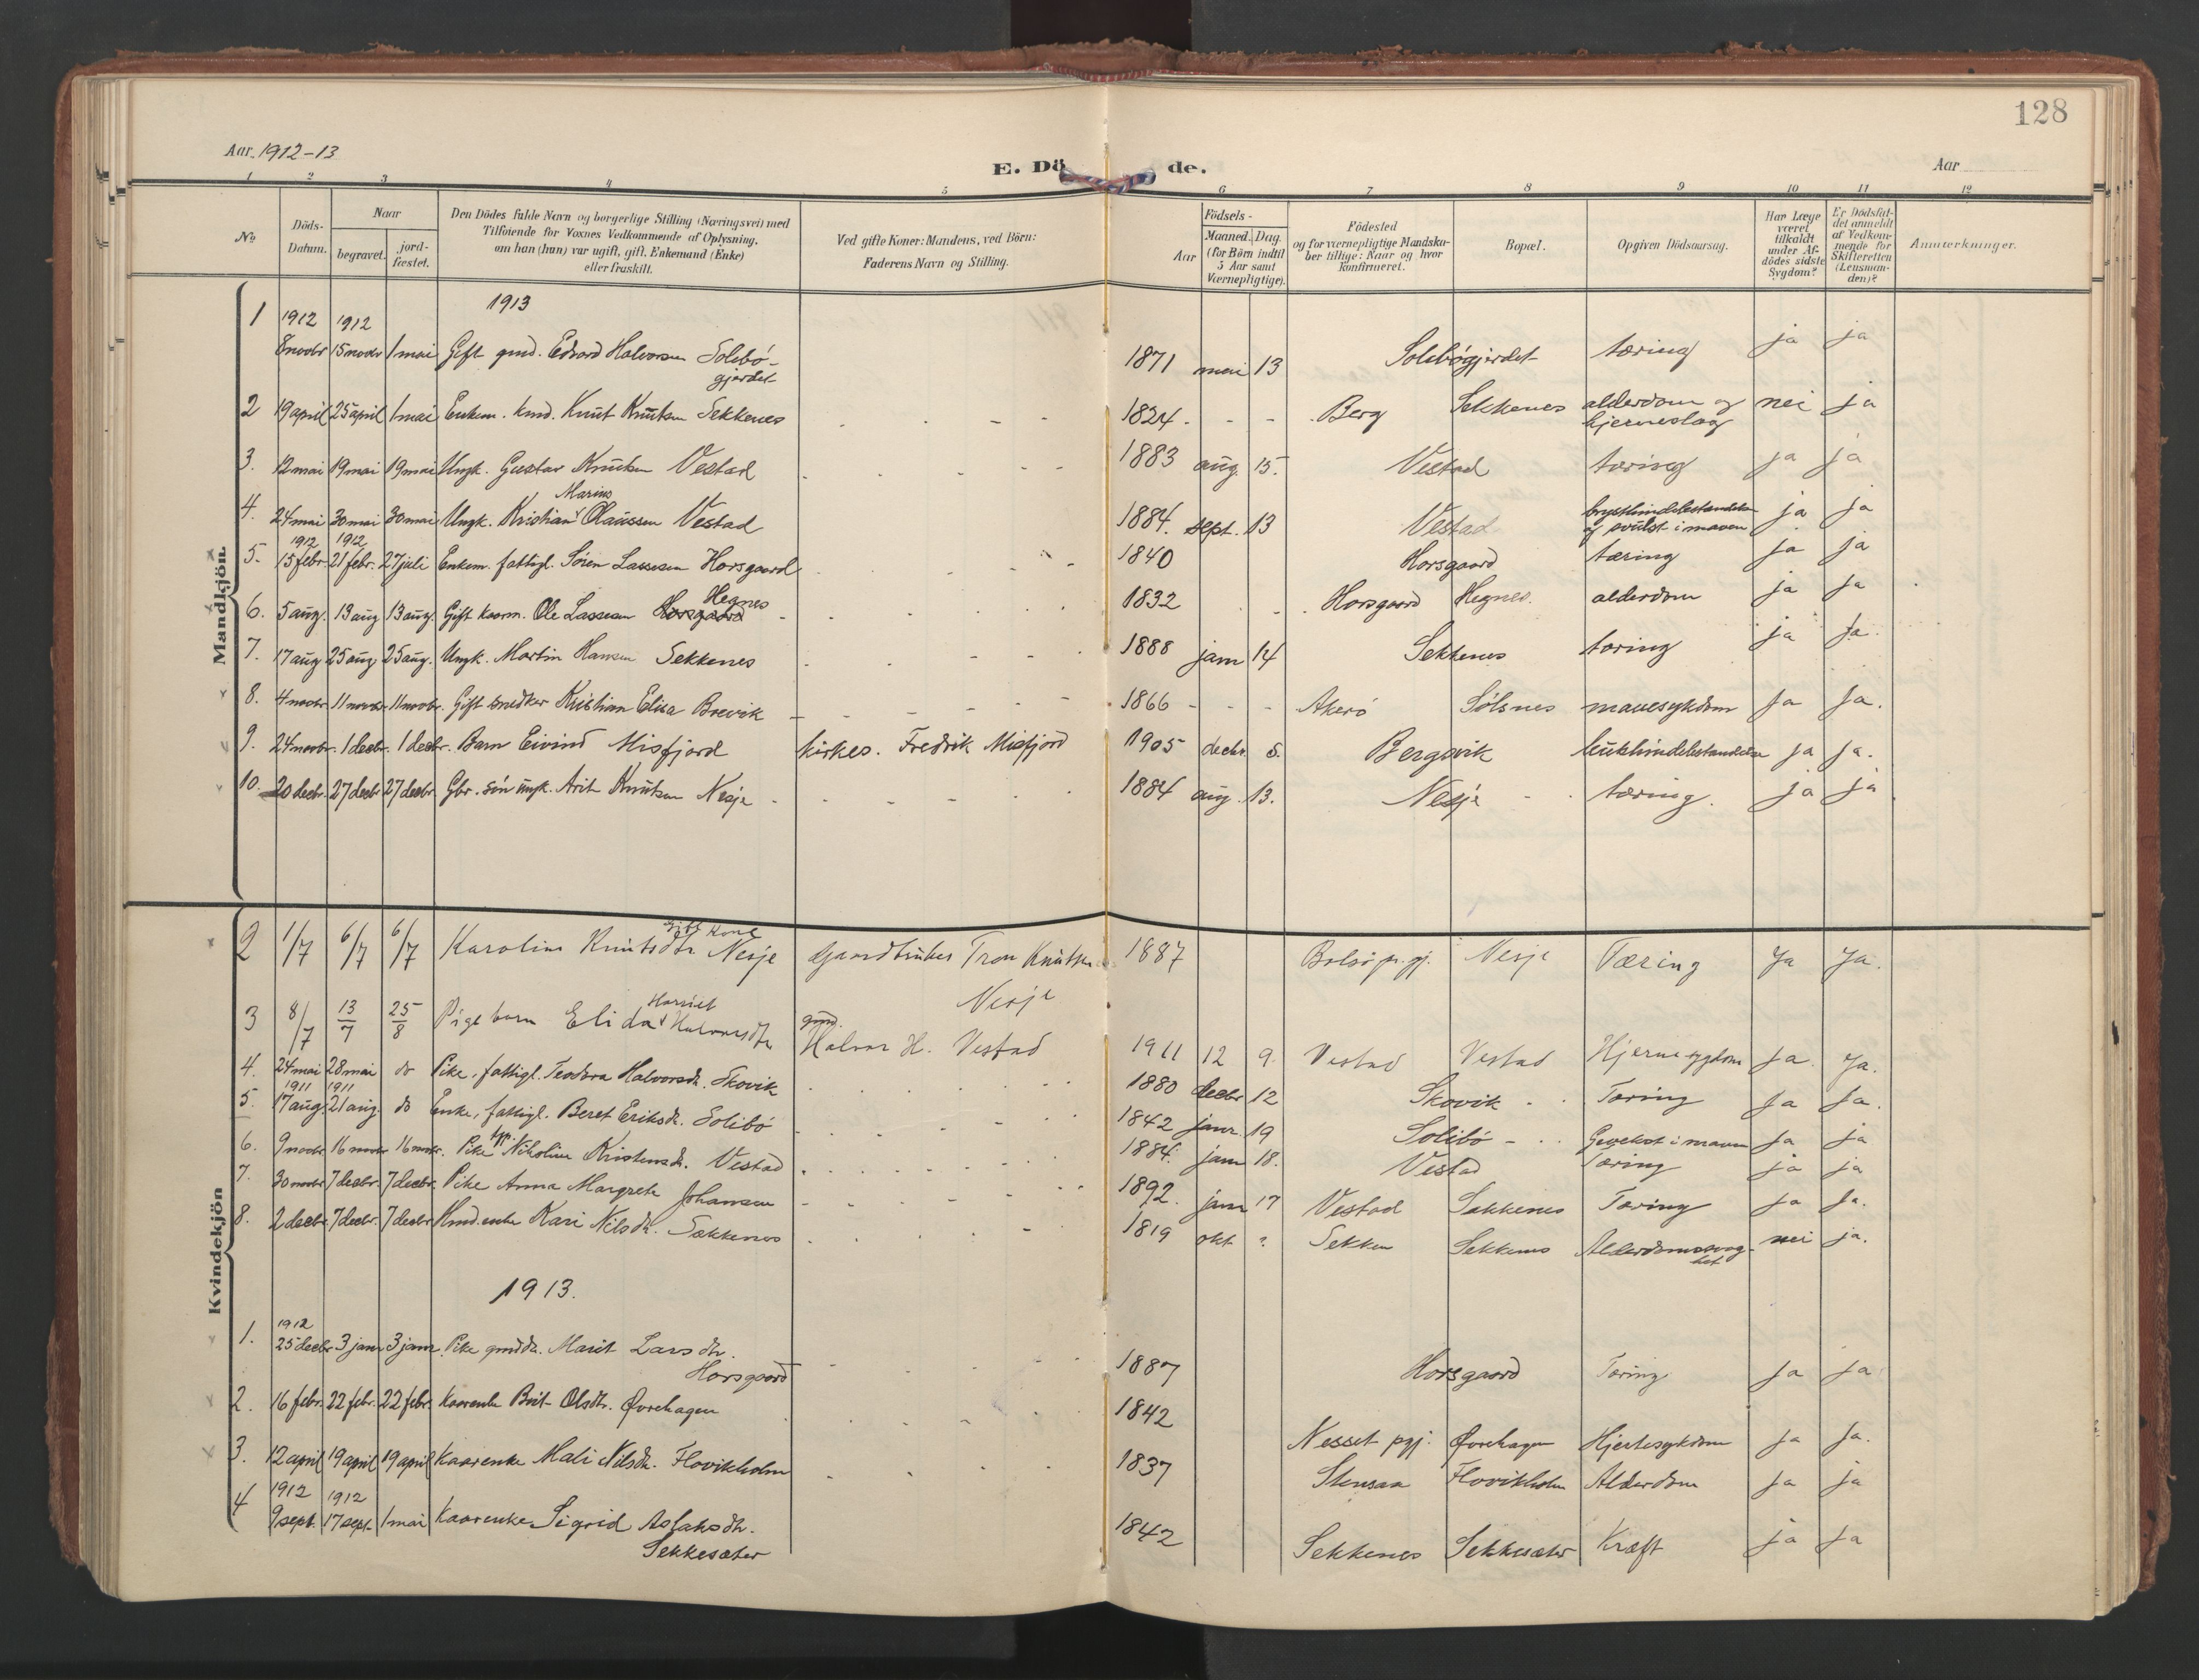 128
Aar 1912-13
E. Dö de.
Aar
1 2 3 4 5 6 7 8 9 10 11 12
No
Döds-Datum.
Naar
begravet.
jord-fæstet.
Den Dödes fulde Navn og borgerlige Stilling (Næringsvei) med
Tilföiende for Voxnes Vedkommende af Oplysning,
om han (hun) var ugift, gift, Enkemand (Enke)
eller fraskilt.
Ved gifte Koner: Mandens, ved Börn:
Faderens Navn og Stilling.
Aar
Födsels-
Maaned. Dag.
(for Börn indtil
5 Aar samt
Værnepligtige).
Födested
og for værnepligtige Mandska-
ber tillige: Naar og hvor
konfirmeret.
Bopæl.
Opgiven Dödsaarsag.
Har Læge
været
tilkaldt
under Af-
dödes sidste
Sygdom?
Er Dödsfal-
det anmeldt
af Vedkom-
mende for
Skifteretten
(Lensman-
den)?
Anmærkninger.
Mandkjön.
1913
1 1912 8 novbr 1912 15 novbr 1 mai Gift gmd. Edvard Halvorsen Solibö-
gjerdet 1871 mai 13 Solibögjerdet tæring ja ja
2 19 april 25 april 1 mai Enkem. kmd. Knut Knutsen Sekkenes 1824 Berg Sekkenes alderdom og
hjerneslag nei ja
3. 12 mai 19 mai 19 mai Ungk. Gustav Knutsen Vestad 1883 aug. 15. Vestad tæring ja ja
Marius
4. 24 mai 30 mai 30 mai Ungk. Kristian Olaussen Vestad 1884. sept. 13 Vestad brysthindebetændelse
og svulst i maven ja ja
5. 1912 15 febr. 1912 21 febr. 27 juli Enkem. fattigl. Sören Lassesen Horsgaard 1840 Horsgaard tæring ja ja
Hegnes
6. 5 aug. 13 aug 13 aug. Gift kaarm. Ole Lassesen Horsgaard 1832 Horsgaard Hegnes. alderdom ja ja
7. 17 aug 25 aug 25 aug. Ungk. Martin Hansen Sekkenes 1888 janr 14 Sekkenes tæring ja ja.
8. 4 novbr 11 novbr 11 novbr. Gift snedker Kristian Elisa Brevik 1866 Akerö Sölsnes mavesykdom ja ja.
9. 24 novbr. 1 decbr. 1 decbr. Barn Eivind Misfjord kirkes. Fredrik Misfjord 1905 decbr. 5. Bergsvik bukhindebetændelse ja ja.
10. 20 decbr. 27 decbr 27 decbr. Gbr. sön ungk. Arit Knutsen Nesje 1884 aug. 13. Nesje tæring. ja ja
Kvindekjön
gift Kone
2 1/7 6/7 6/7 Karoline Knutsdtr Nesje Gaardbruker Tron Knutsen
Nesje 1887 Bolsö p.gj. Nesje Tæring Ja Ja.
Harriet
3 8/7 13/7 25/8 Pigebarn Elida Halvorsdtr gmd.
Halvor H. Vestad 1911 12 9. Vestad Vestad Hjernesygdom Ja. Ja.
4. 24 mai 28 mai do Pike, fattigl. Teodora Halvorsdr. Skovik 1880 decbr 12 Skovik Tæring Ja Ja.
5. 1911 17 aug. 1911 21 aug. do Enke, fattigl. Beret Eriksdr. Solibö 1842 janr. 19 Solibö Gevekst i maven Ja ja
6. 9 novbr 16 novbr 16 novbr. Pike Nikoline Kristensdr. Vestad 1884. janr 18. Vestad Tæring ja ja
7. 30 novbr 7 decbr. 7 decbr. Pike Anna Margrete Johansen 1892. janr 17 Vestad Sekkenes Tæring ja Ja.
8. 2 decbr. 7 decbr. 7 decbr Kmd.enke Kari Nilsdr. Sækkenes 1819 okt ? Sekken Sekkenes Alderdomssvag-
het nei ja.
1913.
1. 1912 25 decbr 3 janr 3 janr Pike gmddr. Marit Larsdtr.
Horsgaard 1887 Horsgaard Tæring Ja Ja
2. 16 febr. 22 febr. 22 febr. Kaarenke Brit Olsdtr. Øvrehagen 1842 Nesset pgj. Øvrehagen Hjertesykdom ja Ja.
3. 12 april 19 april 19 april Kaarenke Mali Nilsdr. Flovikholm 1837 Stensaa Flovikholm Alderdom ja ja
4 1912 9 sept. 1912 17 sept. 1 mai Kaarenke Sigrid Aslaksdtr.
Sekkesæter 1842 Sekkenes Sekkesæter Kræft ja ja